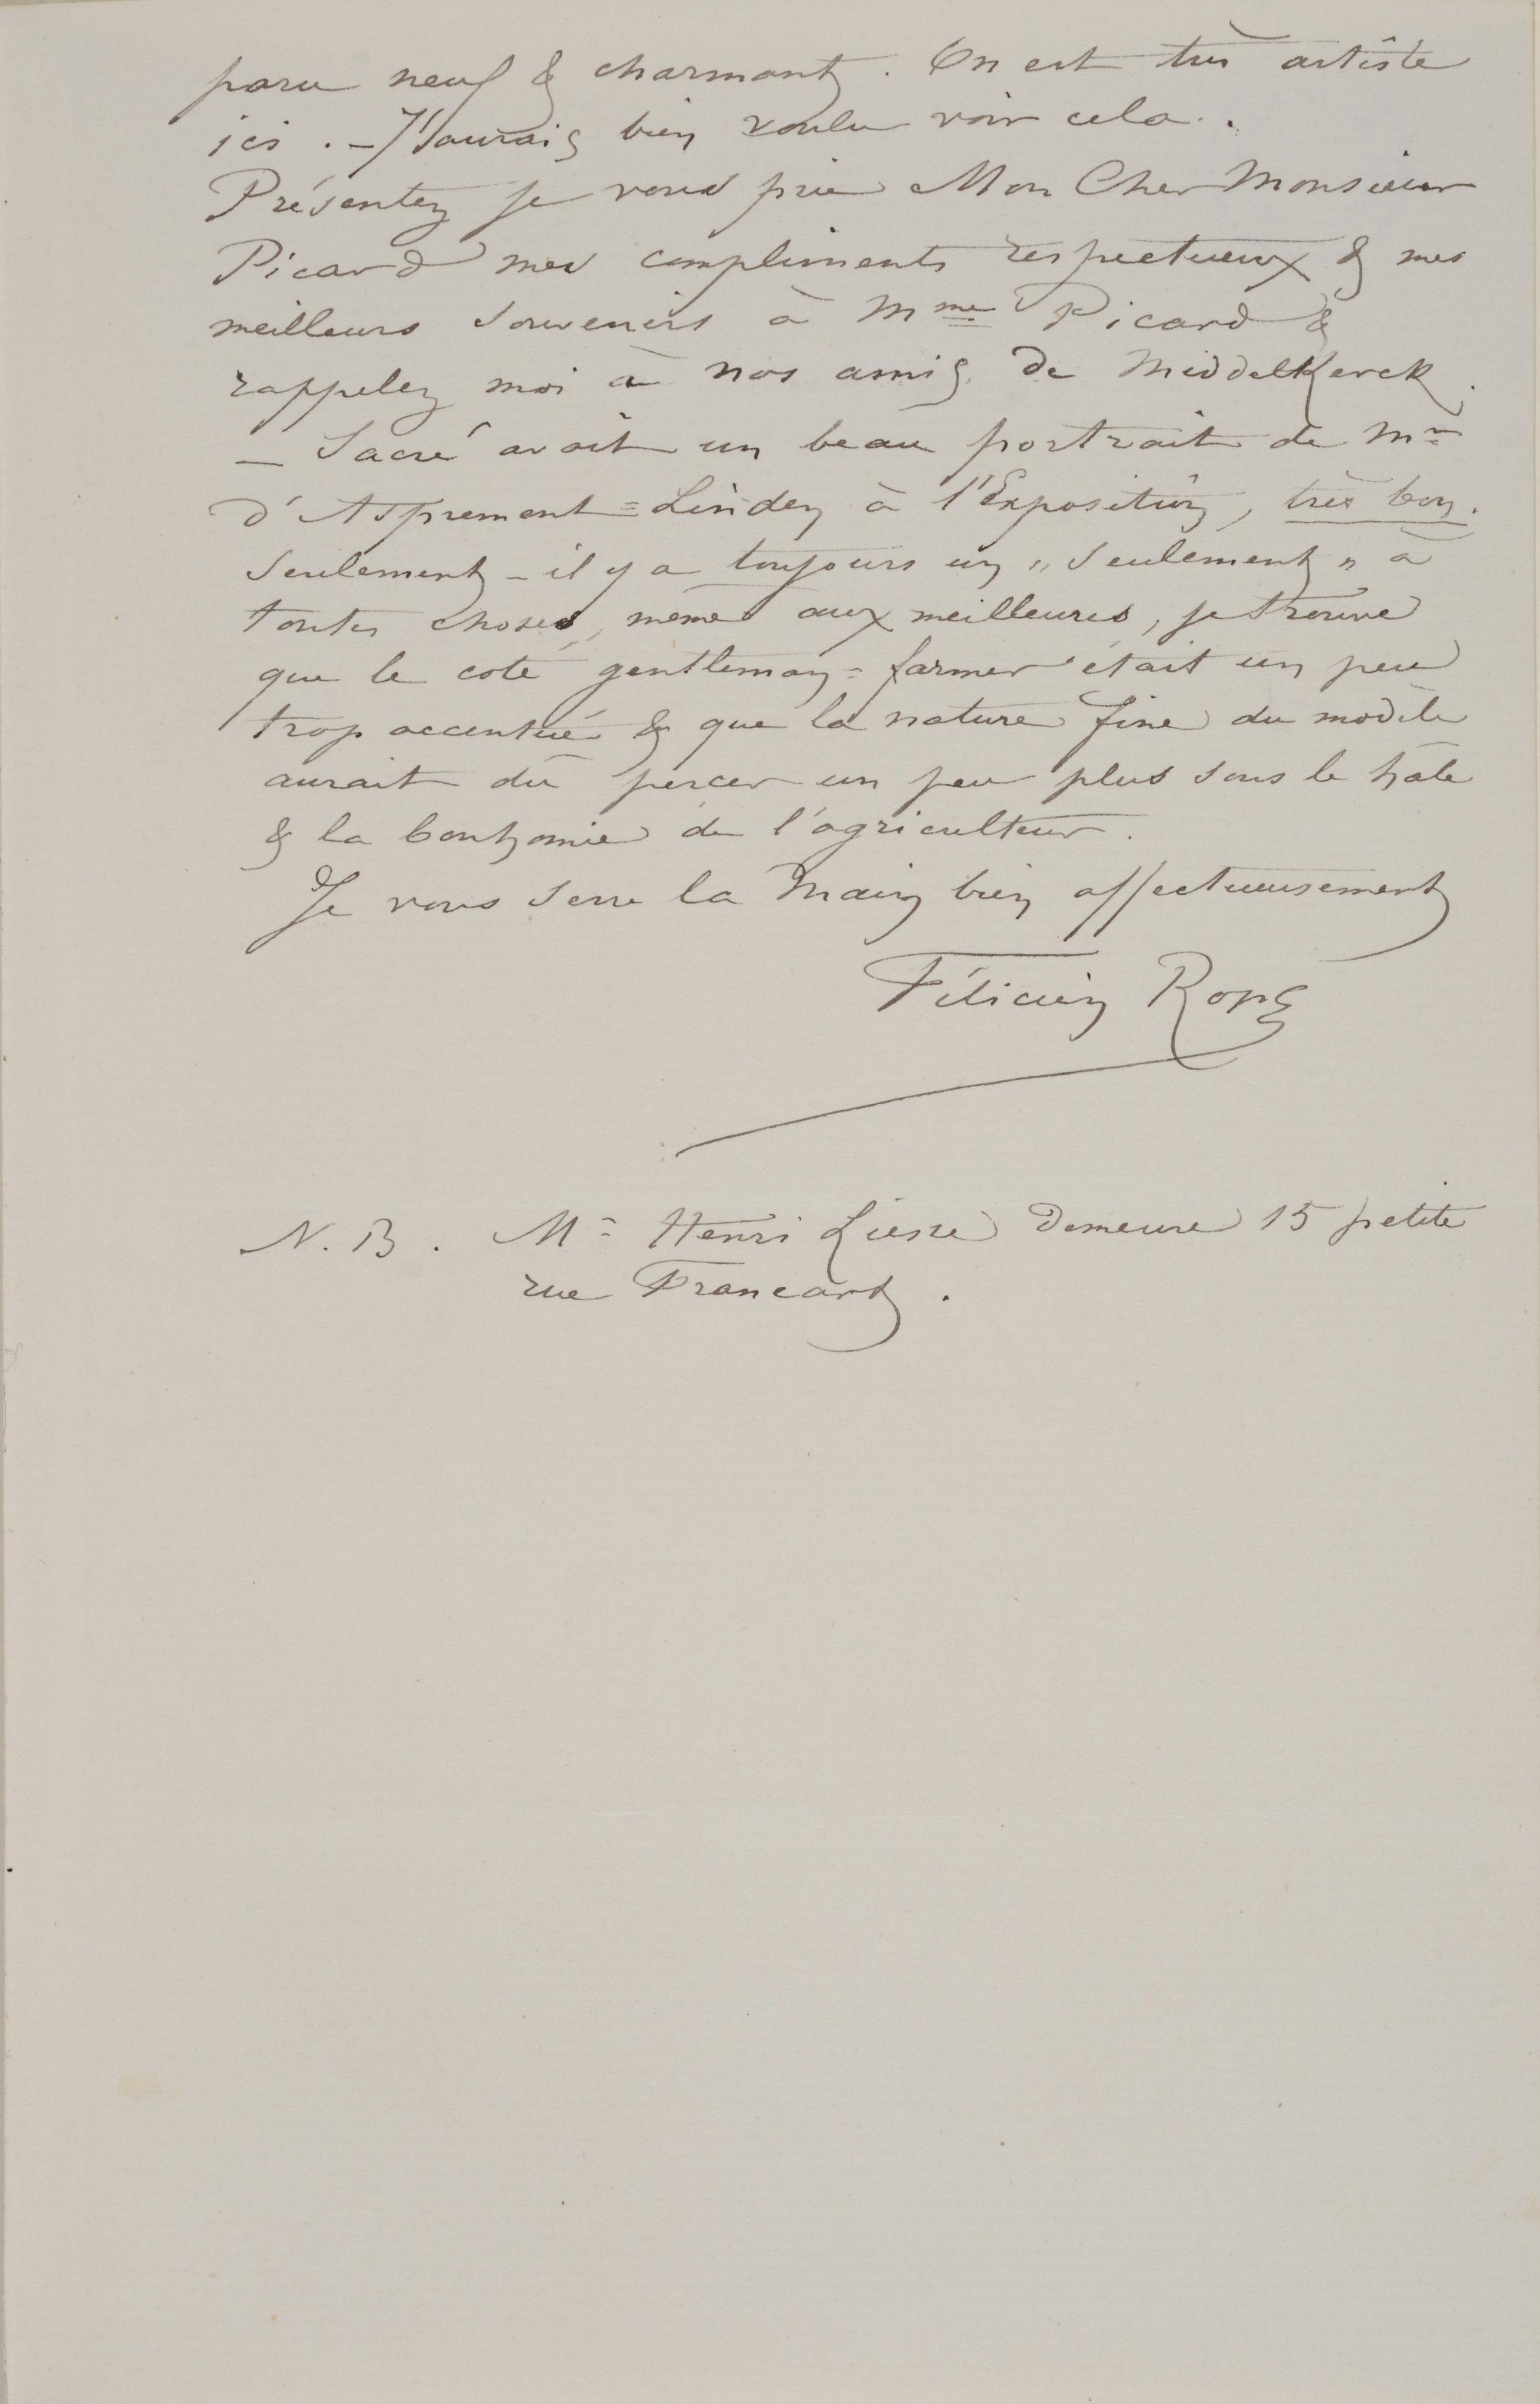 paru neuf & charmant. On est très artiste
ici. – J'aurais bien voulu voir cela.
Présentez je vous prie Mon Cher Monsieur
Picard mes compliments respectueux & mes
meilleurs souvenirs à Mme Picard &
rappelez moi à nos amis de MiddelKerck.
– Sacré avait un beau portrait de Mr
d'Aspremont=Linden à l'Exposition, très bon.
Seulement – il y a toujours un „seulement" à
toutes choses, même aux meilleures, je trouve
que le coté gentleman=farmer était un peu
trop accentué & que la nature fine du modèle
aurait dû percer un peu plus sous le hâle
& la bonhomie de l'agriculteur.
Je vous serre la main bien affectueusement
Félicien Rops
N. B. Mr Henri Liesse demeure 15 petite
rue Francart.